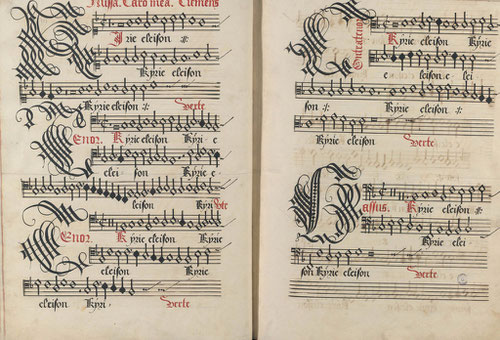 Missa. Caro mea. Clemens
Kyrie eleison :
Kyrie eleison
Kyrie eleison :
Verte
Tenor. Kyrie eleison Kyri e
elei son Kyrie e
leison Kyri Vte
Tenor. Kyrie eleison Kyrie
eleison Kyrie
eleison Kyri Verte
Contratenor
Kyrie eleison :
Kyrie eleison
e leison e lei
son : Kyrie eleison
Kyrie eleison
Verte.
Bassus. Kyrie eleison :
Kyrie elei
son Kyrie eleison Verte